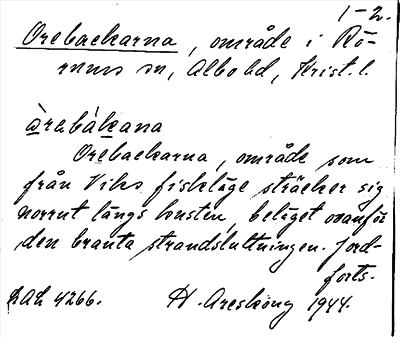 1-2.
Orebackarna, område i Rö-
rums sn, Albo hd, Krist. l.
òrəbàkana
Orebackarna, område som
från Viks fiskläge sträcker sig
norrut längs kusten, beläget ovanför
den branta strandsluttningen. Jord-
forts.
LAL 4266. H. Areskoug 1944.